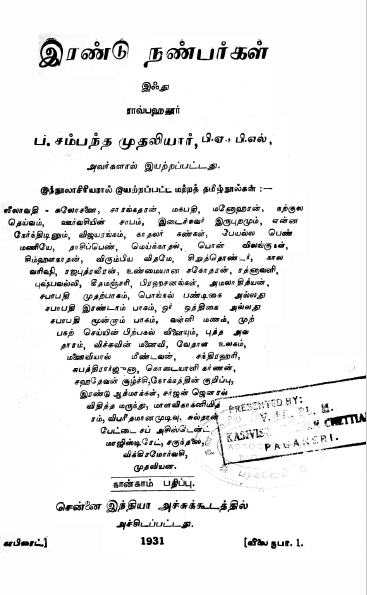 இரண்டு நண்பர்கள்
இஃது
ராவ்பஹதூர்
ப. சம்பந்த முதலியார், பி.ஏ., பி.எல்,
அவர்களால் இயற்றப்பட்டது.
இந்நூலாசிரியரால் இயற்றப்பட்ட மற்றத் தமிழ்நூல்கள் :—
லீலாவதி - சுலோசனை, சாரங்கதரன், மகபதி, மனோஹரன், கற்குல
தெய்வம், ஊர்வசியின் சாபம், இடைச்சுவர் இருபுறமும், என்ன
நேர்ந்திடினும், விஜயரங்கம், காதலர் கண்கள், பேயல்ல பெண்
மணியே, தாசிப்பெண், மெய்க்காதல், பொன் விலங்குகள்,
சிம்ஹளநாதன், விரும்பிய விதமே, சிறுத்தொண்டர், கால
வரிஷி, ரஜபுத்ரவீரன், உண்மையான சகோதரன், ரத்னாவளி,
புஷ்பவல்லி, கீதமஞ்சரி, பிரஹசனங்கள், அமலாதித்யன்,
சபாபதி முதற்பாகம், பொங்கல் பண்டிகை அல்லது
சபாபதி இரண்டாம் பாகம், ஓர் ஒத்திகை அல்லது
சபாபதி மூன்றும் பாகம், வள்ளி மணம், முற்
பகற் செய்யின் பிற்பகல் விளையும், புத்த அவ
தாரம், விச்சுவின் மனைவி, வேதாள உலகம்,
மனைவியால் மீண்டவன், சந்திரஹரி,
சுபத்திரார்ஜுனா, கொடையாளி கர்ணன்,
சஹதேவன் சூழ்ச்சி, நோக்கத்தின் குறிப்பு,
இரண்டு ஆத்மாக்கள், சர்ஜன் ஜெனரல்
விதித்த மருந்து, மாளவிகாக்னிமித்
ரம், விபரீதமானமுடிவு, சுல்தான்
பேட்டை சப் அசிஸ்டென்ட்
மாஜிஸ்டிரேட், சகுந்தலை,
விக்கிரமோர்வசி,
முதலியன.
PRESENTED BY:
V. M.
KASIVIS CHETTIAR
PAGANERI.
நான்காம் பதிப்பு.
சென்னை இந்தியா அச்சுக்கூடத்தில்
அச்சிடப்பட்டது.
காபிரைட்.] 1931 [விலை ரூபா. 1.